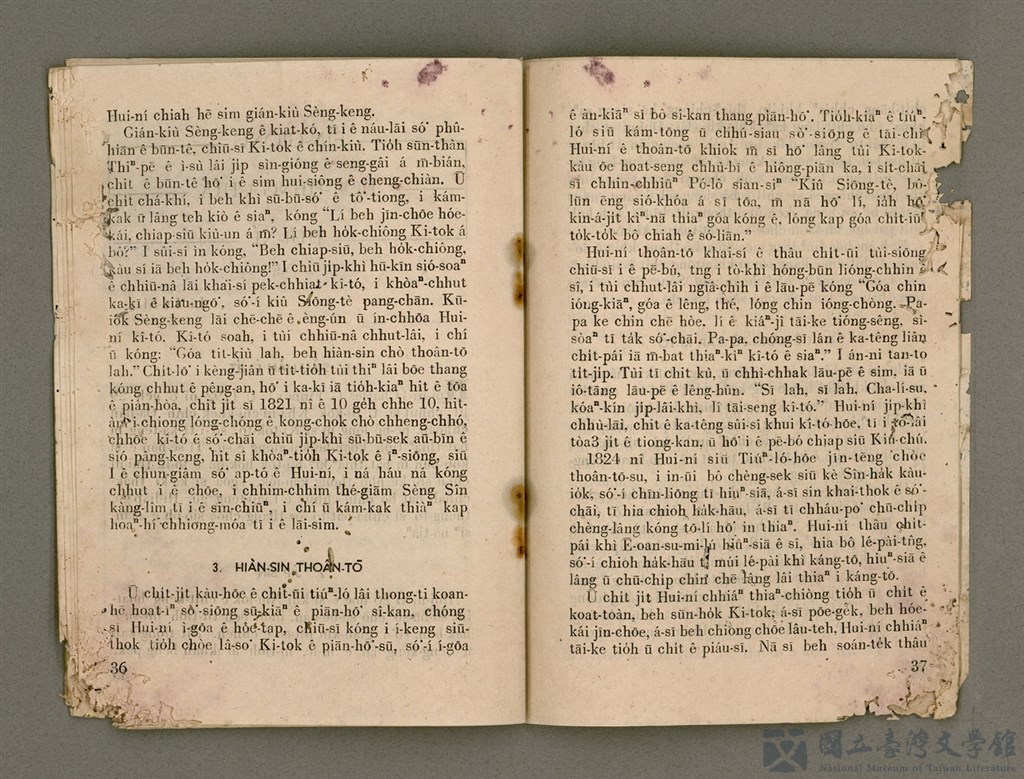 Hui-ní chiah hē sim gián-kiù Sèng-keng.
Gián-kiù Sèng-keng ê kiat-kó, tī i ê náu-lāi só͘ phû-
hiān ê būn-tê, chiū-sī Ki-tok ê chín-kiù. Tio̍h sūn-thàn
Thiⁿ-pē ê ì-sù lâi ji̍p sìn-gióng ê seng-gâi á m̄-bián,
chit ê būn-tê hō͘ i ê sim hui-siông ê cheng-chiàn. Ū
chit chá-khí, i beh khì sū-bū-só͘ ê tô͘-tiong, i kám-
kak ū lâng teh kiò ê siaⁿ, kóng “Lí beh jīn-chōe hóe-
kái, chiap-siū kiù-un á m̄? Lí beh ho̍k-chiông Ki-tok á
bô?” I sûi-sî ìn kóng, “Beh chiap-siū, beh ho̍k-chiông,
kàu sí iā beh ho̍k-chiông!” I chiū ji̍p-khì hū-kīn sió-soaⁿ
ê chhiū-nâ lāi khai-sí pek-chhiat kî-tó, i khòaⁿ-chhut
ka-kī ê kiau-ngō͘, só͘-í kiû Siōng-tè pang-chān. Kū-
iok Sèng-keng lāi chē-chē ê èng-ún ū ín-chhōa Hui-
ní kî-tó. Kî-tó soah, i tùi chhiū-nâ chhut-lâi, i chí
ū kóng: “Góa tit-kiù lah, beh hiàn-sin chò thoân-tō
lah.” Chit-lō͘ i kèng-jiân ū tit-tio̍h tùi thiⁿ lâi bōe thang
kóng chhut ê pêng-an, hō͘ i ka-kī iā tio̍h-kiaⁿ hit ê tōa
ê piàn-hòa, chit ji̍t sī 1821 nî ê 10 ge̍h chhe 10, hit-
àm i chiong lóng-chóng ê kong-chok chò chheng-chhó,
chhōe kî-tó ê só͘-chāi chiū ji̍p-khì sū-bū-sek aū-bīn ê
sió pâng-keng, hit sî khòaⁿ-tio̍h Ki-tok ê iⁿ-siōng, siū
I ê chun-giâm só͘ ap-tó ê Hui-ní, i ná háu ná kóng
chhut i ê chōe, i chhim-chhim thé-giām Sèng Sîn
kàng-lîm tī i ê sin-chiūⁿ, i chí ū kám-kak thiàⁿ kap
hoaⁿ-hí chhiong-móa tī i ê lāi-sim.
3. HIÀN-SIN THOÂN-TŌ
Ū chit-ji̍t kàu-hōe ê chi̍t-ūi tiúⁿ-ló lâi thong-ti koan-
hē hoat-īⁿ só͘-siōng sū-kiāⁿ ê piān-hō͘ sî-kan, chóng
sī Hui-ní ì-gōa ê hôe-tap, chiū-sī kóng i í-keng siū-
thok tio̍h chòe lâ-so͘ Ki-tok ê piān-hō͘-sū, só͘-í í-gōa
36
ê àn-kiāⁿ sī bô sî-kan thang piān-hō͘. Tio̍h-kiaⁿ ê tiúⁿ-
ló siū kám-tōng ū chhú-siau só͘-siōng ê tāi-chì
Hui-ní ê thoân-tō khiok m̄ sī hō͘ lâng tùi Ki-tok-
kàu ōe hoat-seng chhù-bī ê hiông-piān ka, i si̍t-chāi
sī chhin-chhiūⁿ Pó-lô sian-siⁿ “Kiû Siōng-tè, bô-
lūn ēng sió-khóa á sī tōa, m̄ nā hō͘ lí, ia̍h hō͘
kin-á-ji̍t kìⁿ-nā thiaⁿ góa kóng ê, lóng kap góa chit-iūⁿ
to̍k-to̍k bô chiah ê só-liān.”
Hui-ní thoân-tō khai-sí ê thâu chi̍t-ūi tùi-siōng
chiū-sī i ê pē-bú, tng i tò-khì hóng-būn lióng-chhin ê
sî, i tùi chhut-lâi ngiâ-chih i ê lāu-pē kóng “Góa chin
ióng-kiāⁿ, góa ê lêng, thé, lóng chin ióng-chòng. Pa-
pa ke chin chē hòe. lí ê kiáⁿ-jî tāi-ke tióng-sêng, sì-
sòaⁿ tī ta̍k só͘-chāi. Pa-pa, chóng-sī lán ê ka-têng liân
chi̍t-pái iā m̄-bat thiaⁿ-kìⁿ kî-tó ê siaⁿ.” I án-ni tan-to
ti̍t-ji̍p. Tùi tī chit kù, ū chhì-chhak lāu-pē ê sim, iā ū
iô-tāng lāu-pē ê lêng-hûn. “Sī lah, sī lah, Cha-lí-su,
kóaⁿ-kín ji̍p-lâi-khì, lí tāi-seng kî-tó.” Hui-ní ji̍p-khì
chhù-lāi, chit ê ka-têng sûi-sî khui kî-tó-hōe, tī i só-lâi
tòa3 ji̍t ê tiong-kan, ū hō͘ i ê pē-bó chiap siū Kiù-chú.
1824 nî Hui-ní siū Tiúⁿ-ló-hōe jīn-tēng chòe
thoân-tō-su, i in-ūi bô chèng-sek siū kè Sîn-ha̍k kàu-
io̍k, só͘-í chīn-liōng tī hiuⁿ-siā, á-sī sin khai-thok ê só͘-
chāi, tī hia chioh ha̍k-hāu, á-sī tī chháu-po͘ chū-chi̍p
chèng-lâng kóng tō-lí hō͘ in thiaⁿ. Hui-ní thâu chi̍t-
pái khì E-oan-su-mi-lú hiuⁿ-siā ê sî, hia bô lé-pài-tn̂g,
só͘-í chioh ha̍k-hāu tī múi lé-pài khì káng-tō, hiuⁿ-siā ê
lâng ū chū-chi̍p chin chē lâng lâi thiaⁿ i káng-tō.
Ū chi̍t ji̍t Hui-ní chhiáⁿ thiaⁿ-chiòng tio̍h ū chi̍t ê
koat-toàn, beh sūn-ho̍k Ki-tok, á-sī pōe-ge̍k, beh hóe-
kái jīn-chōe, á-sī beh chiòng chôe lâu-teh, Hui-ní chhiáⁿ
tāi-ke tio̍h ū chi̍t ê piáu-sī. Nā sī beh soán-te̍k thâu
37
國立臺灣文學館
National Museum of Taiwan Literature